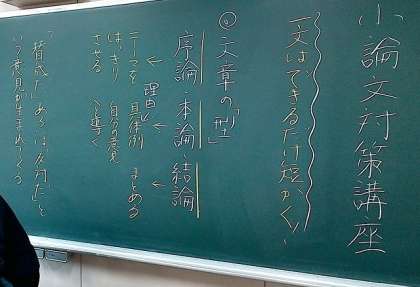 小論文対策講座
一文はできるだけ短かく!
◎文章の「型」
序論・本論・結論
テーマをはっきりさせる
理由
具体例
自分の意見へ導く
まとめる
「賛成だ」あるいは「反対だ」と
いう意見が